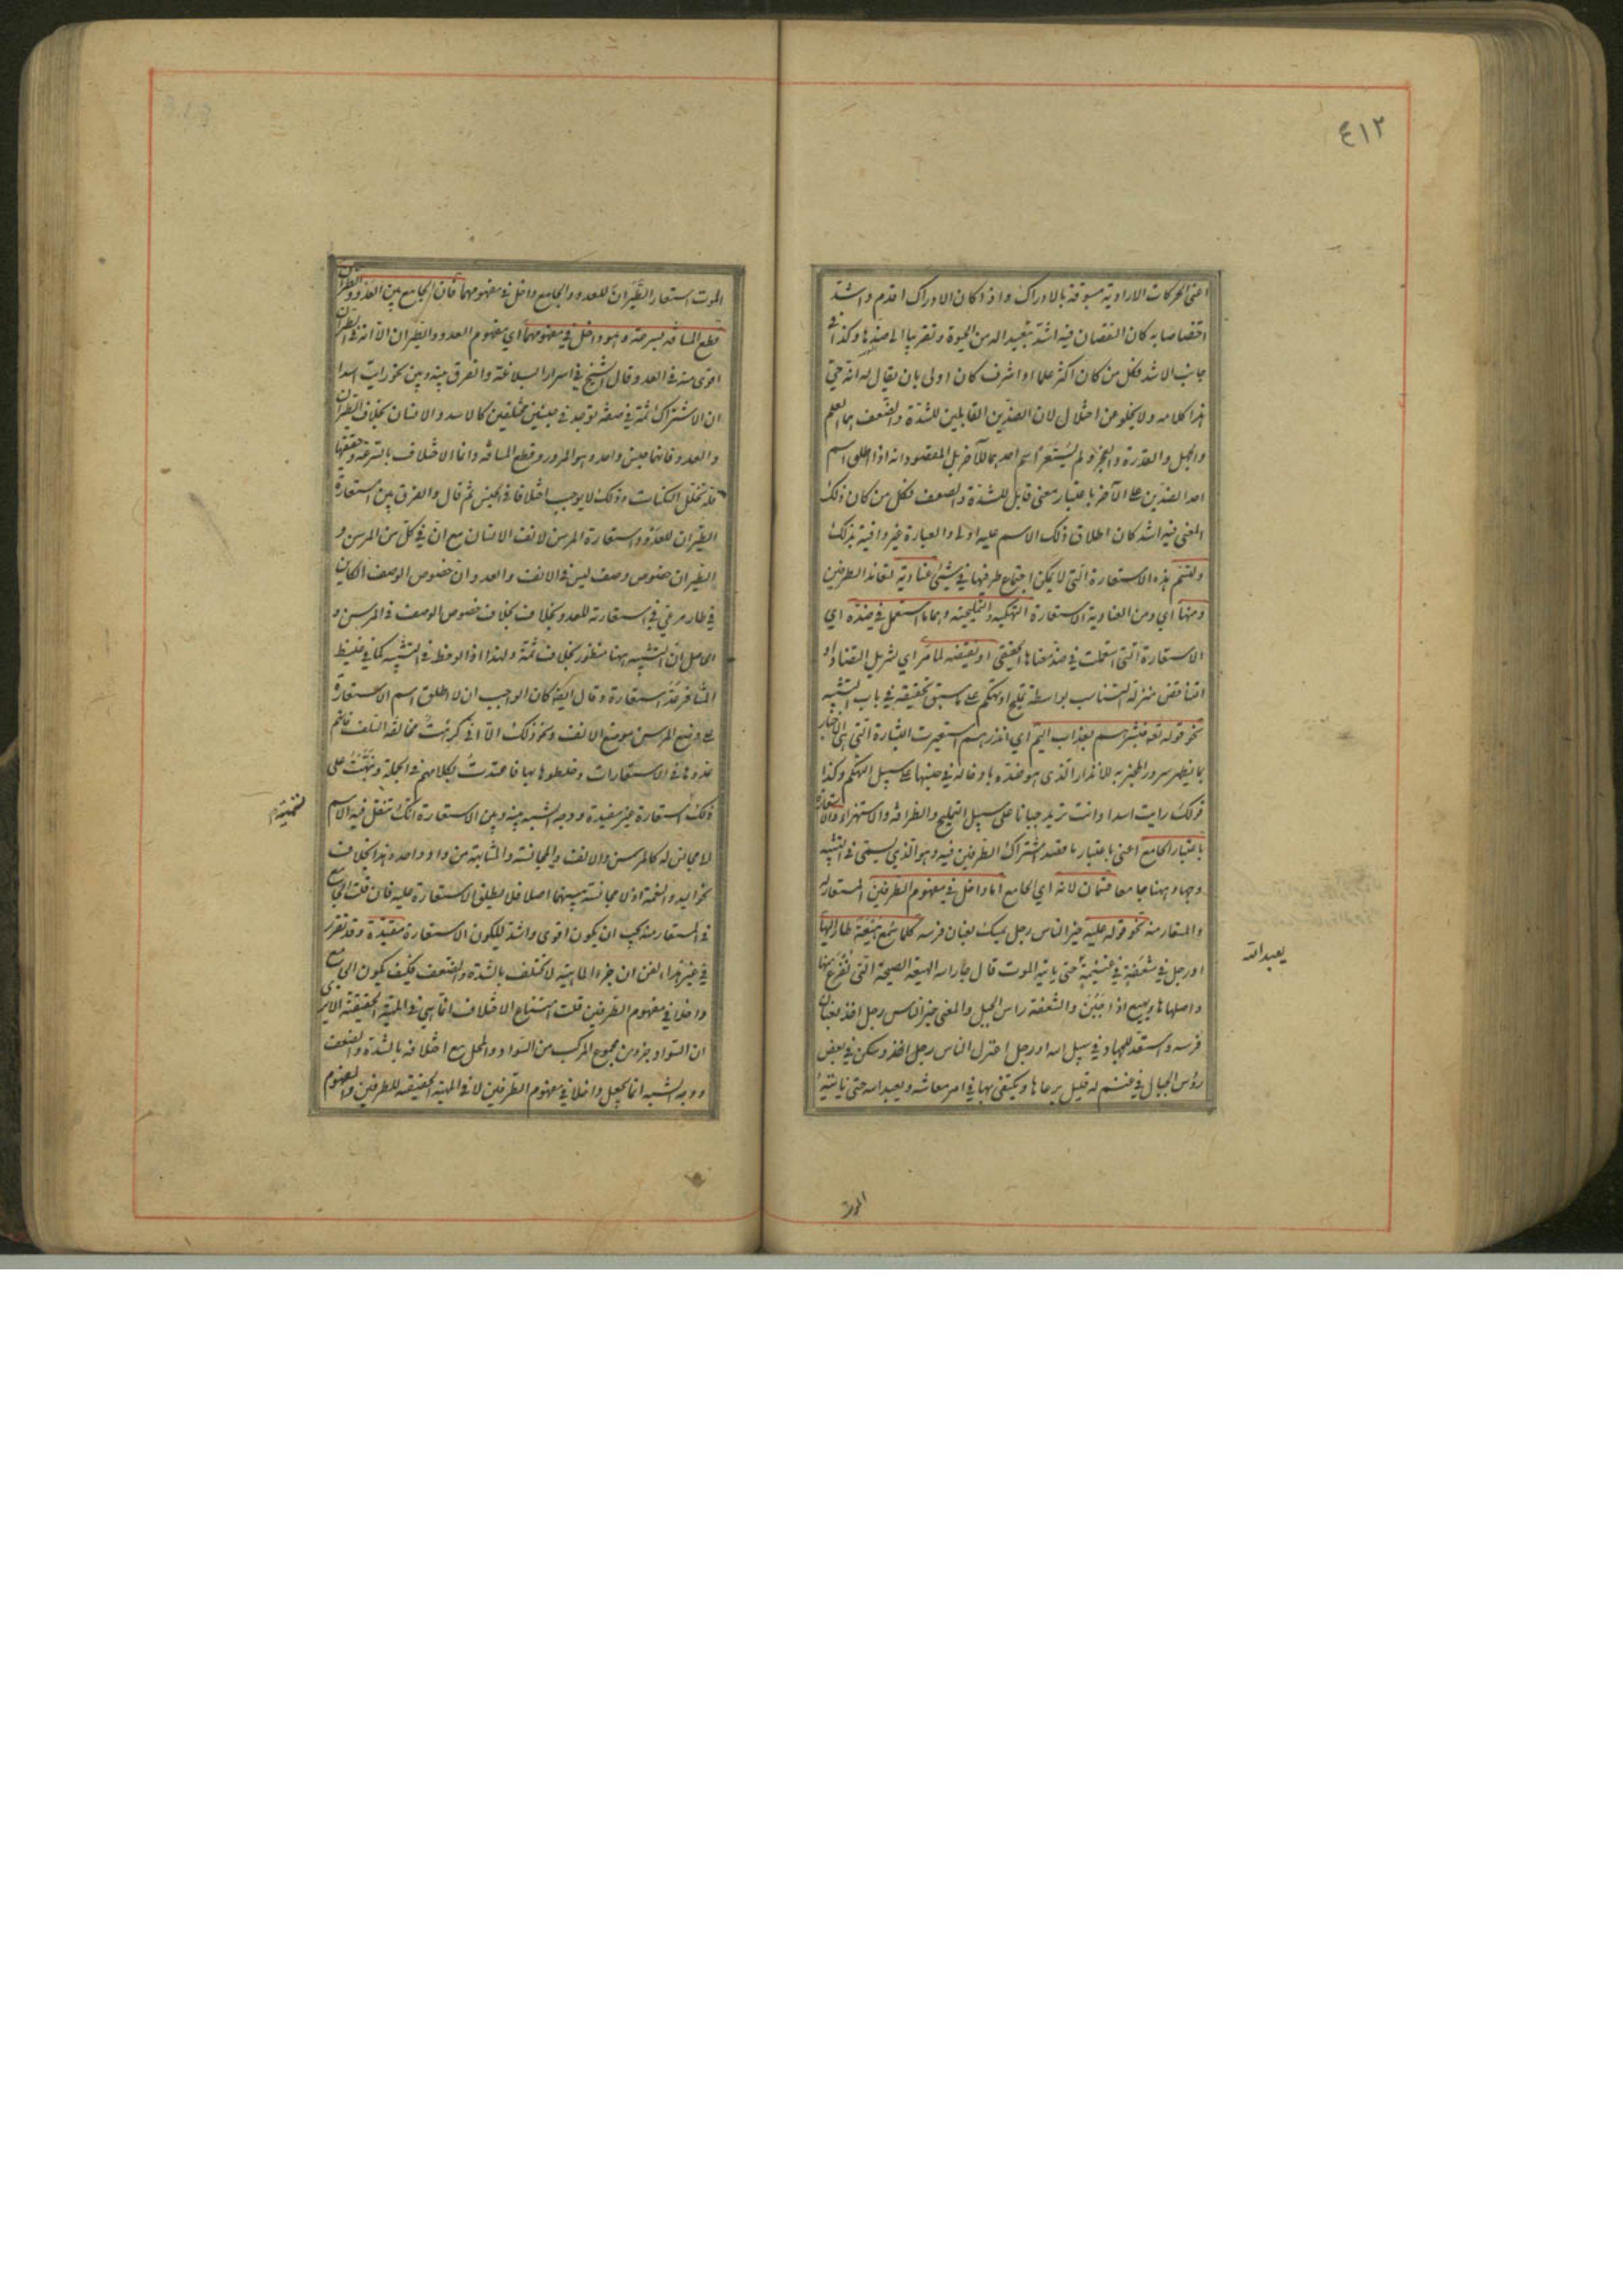 ٤١٢
اعنى الحركات الارادية مسبوقة بالادراك واذا كان الادراك اقدم واشد
اختصاصا به كان النقصان فيه اشد تبعيدا له من الحيوة وتقريبا الى ضدها وكذا في
جانب الاشد فكل من كان اكثر علما او اشرف كان اولى بان يقال له انه حي
هذا كلامه ولا يخلو عن اختلال لان الضدين القابلين للشدة والضعف هما العلم
والجهل والقدرة والعجز ولم يستعر اسم احدهما للآخر بل المقصود انه اذا اطلق اسم
احد الضدين على الآخر باعتبار معنى قابل للشدة والضعف فكل من كان ذلك
المعنى فيه اشد كان اطلاق ذلك الاسم عليه اولى والعبارة غير وافية بذلك
ولتسم هذه الاستعارة التي لا يمكن اجتماع طرفيها في شئ عنادية لتعاند الطرفين
ومنها اي ومن العنادية الاستعارة التهكمية والتمليحية وهما ما استعمل في ضده اي
الاستعارة التي استعملت في ضد معناها الحقيقي او نقيضه لما مر اي لتنزيل التضاد او
التناقض منزلة التناسب بواسطة تمليح او تهكم على ما سبق تحقيقه في باب التشبيه
نحو قوله تعه فبشرهم بعذاب اليم اي انذرهم استعيرت البشارة التي هي الاخبار
بما يظهر سرور المخبر به للانذار الذى هو ضده بادخاله في جنسها على سبيل التهكم وكذا
قولك رايت اسدا وانت تريد جبانا على سبيل التمليح والظرافة والاستهزاء والاستعارة
باعتبار الجامع اعني باعتبار ما قصد اشتراك الطرفين فيه وهو الذي يسمى في التشبيه
وجها وههنا جامعا قسمان لانه اي الجامع اما داخل في مفهوم الطرفين المستعار له
والمستعار منه نحو قوله عليه خير الناس رجل يمسك بعنان فرسه كلما سمع هيعة طار اليها
او رجل في شعفة في غنيمة حتى ياتيه الموت قال جار الله الهيعة الصيحة التي تفزع منها
واصلها هاع يهيع اذا جبن والشعفة راس الجبل والمعنى خير الناس رجل اخذ بعنان
فرسه واستعد للجهاد في سبيل الله او رجل اعتزل الناس رجل اخذ وسكن في بعض
رؤس الجبال في غنم له قليل يرعاها ويكتفى بها في امر معاشه ويعبد الله حتى ياتيه
يعبد الله
الموت
الموت استعار الطيران للعدو والجامع داخل في مفهومهما فان الجامع بين العدو والطيران
قطع المسافة بسرعة وهو داخل في مفهومهما اي مفهوم العدو والطيران الا انه في الطيران
اقوى منه في العدو وقال الشيخ في اسرار البلاغة والفرق بينه وبين نحو رايت اسدا
ان الاشتراك ثمة في صفة توجد في جنسين مختلفين كالاسد والانسان بخلاف الطيران
والعدو فانهما جنس واحد وهو المرور وقطع المسافة وانما الاختلاف بالسرعة وحقيقتها
قلة تخلل السكنات وذلك لا يوجب اختلافا في الجنس ثم قال والفرق بين استعارة
الطيران للعدو واستعارة المرسن لانف الانسان مع ان في كل من المرسن و
الطيران خصوص وصف ليس في الانف والعدو ان خصوص الوصف الكائن
في طار مرعي في استعارته للعدو بخلاف خصوص الوصف في المرسن و
الحاصل ان التشبيه ههنا منظور بخلاف ثمة ولهذا اذا لوحظ في التشبيه كما في غليظ
المشافر عد استعارة وقال ايضا كان الواجب ان لا اطلق اسم الاستعارة
على وضع المرسن موضع الانف ونحو ذلك الا اني كرهت مخالفة السلف فانهم
عدوها في الاستعارات وخلطوها بها فاعتددت بكلامهم في الجملة ونبهت على
ذلك استعارة غير مفيدة ووجه الشبه بينه وبين الاستعارة انك تنقل فيه الاسم
الى مجانس له كالمرسن والانف والمجانسة والمشابهة من واد واحد وهذا بخلاف
نحو اليد والنعمة اذ لا مجانسة بينهما اصلا فلا يطلق الاستعارة عليه فان قلت الجامع
في المستعار منه يجب ان يكون اقوى واشد ليكون الاستعارة مفيدة وقد تقرر
في غير هذا الفن ان جزء الماهية لا تختلف بالشدة والضعف فكيف يكون الجامع
داخلا في مفهوم الطرفين قلت امتناع الاختلاف انما هي في الماهية الحقيقية الا يرى
ان السواد جزء من مجموع المركب من السواد والمحل مع اختلافه بالشدة والضعف
ووجه الشبه انما يجعل داخلا في مفهوم الطرفين لا في المهية الحقيقية للطرفين والمفهوم